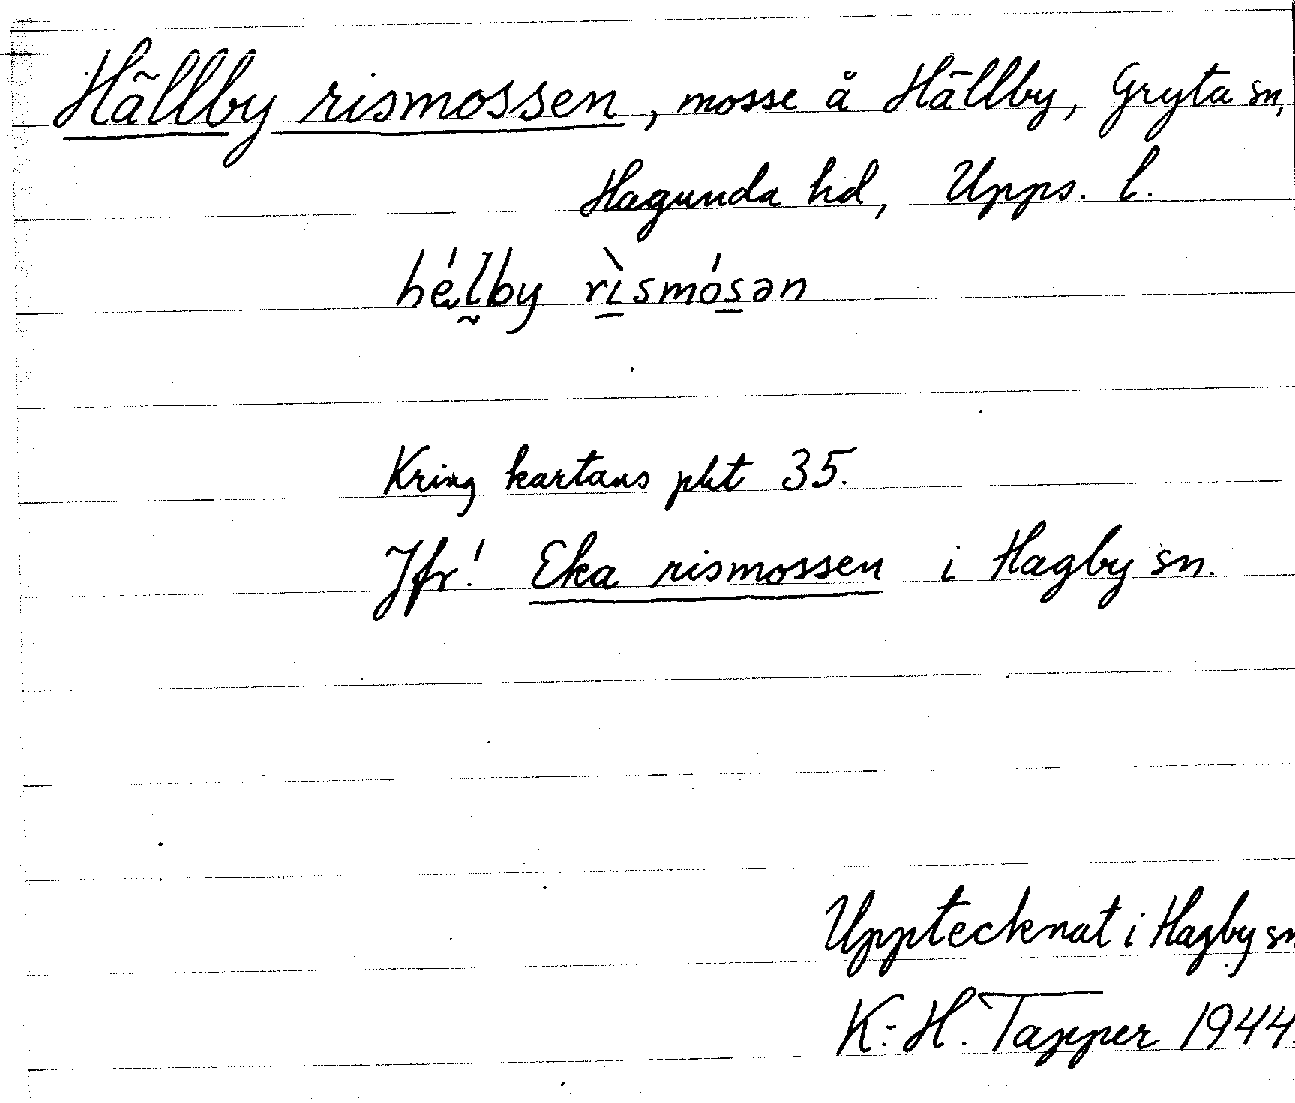 Hällby rismossen, mosse å Hällby, Gryta sn,
Hagunda hd, Upps. l.
hé̤l̰by rì̠smós̠ən
Kring kartans pkt 35.
Jfr! Eka rismossen i Hagby sn.
Upptecknat i Hagby sn
K.-H. Tapper 1944